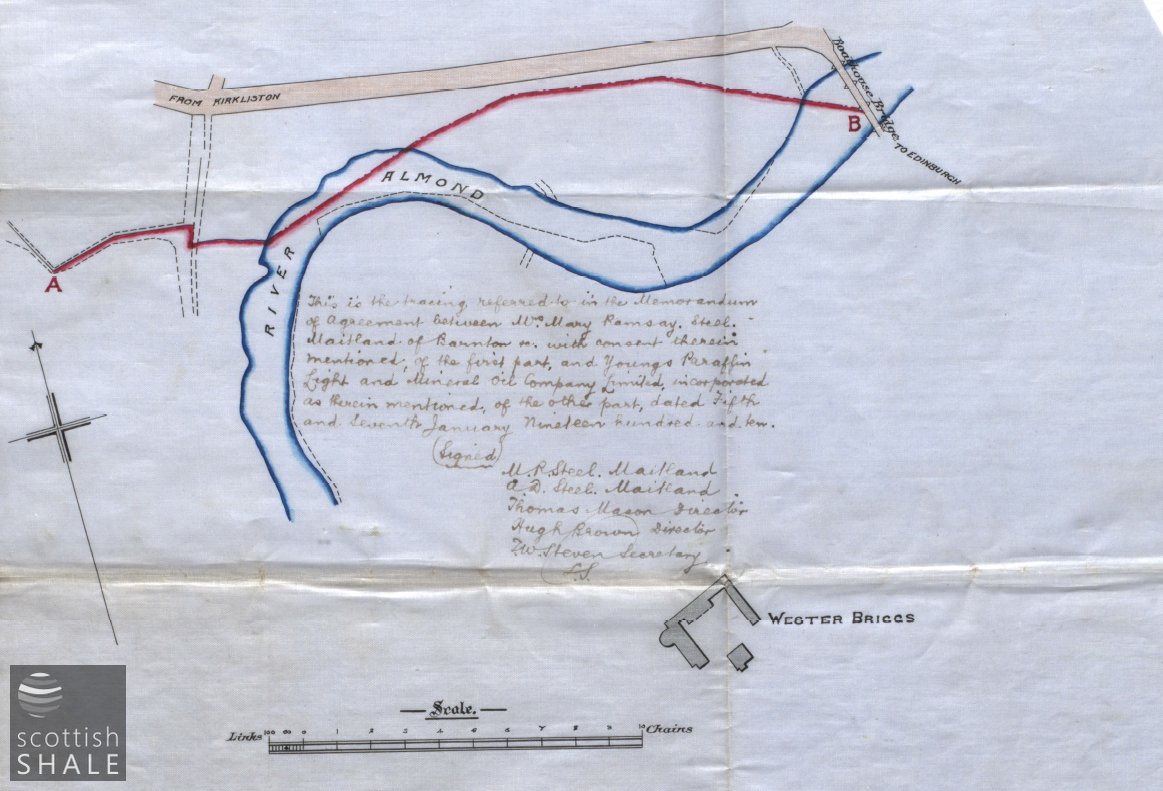 Boathouse Bridge
FROM KIRKLISTON
B
TO EDINBURGH
ALMOND
A
RIVER
This is the tracing referred to in the Memorandum
of Agreement between Mrs Mary Ramsay. Steel.
Maitland of Barnton &c. with consent therein
mentioned, of the first part, and Youngs Paraffin
Light and Mineral Oil Company Limited, incorporated
as therein mentioned, of the other part, dated Fifth
and Seventh January Nineteen hundred and ten.
(Signed)
M. R. Steel. Maitland
A. D. Steel. Maitland
Thomas Mason Director
Hugh Brown Director
F. W. Steven Secretary
L.S.
WESTER BRIGGS
Scale.
Links 100 50 0 1 2 3 4 5 6 7 8 9 10 Chains
scottish
SHALE